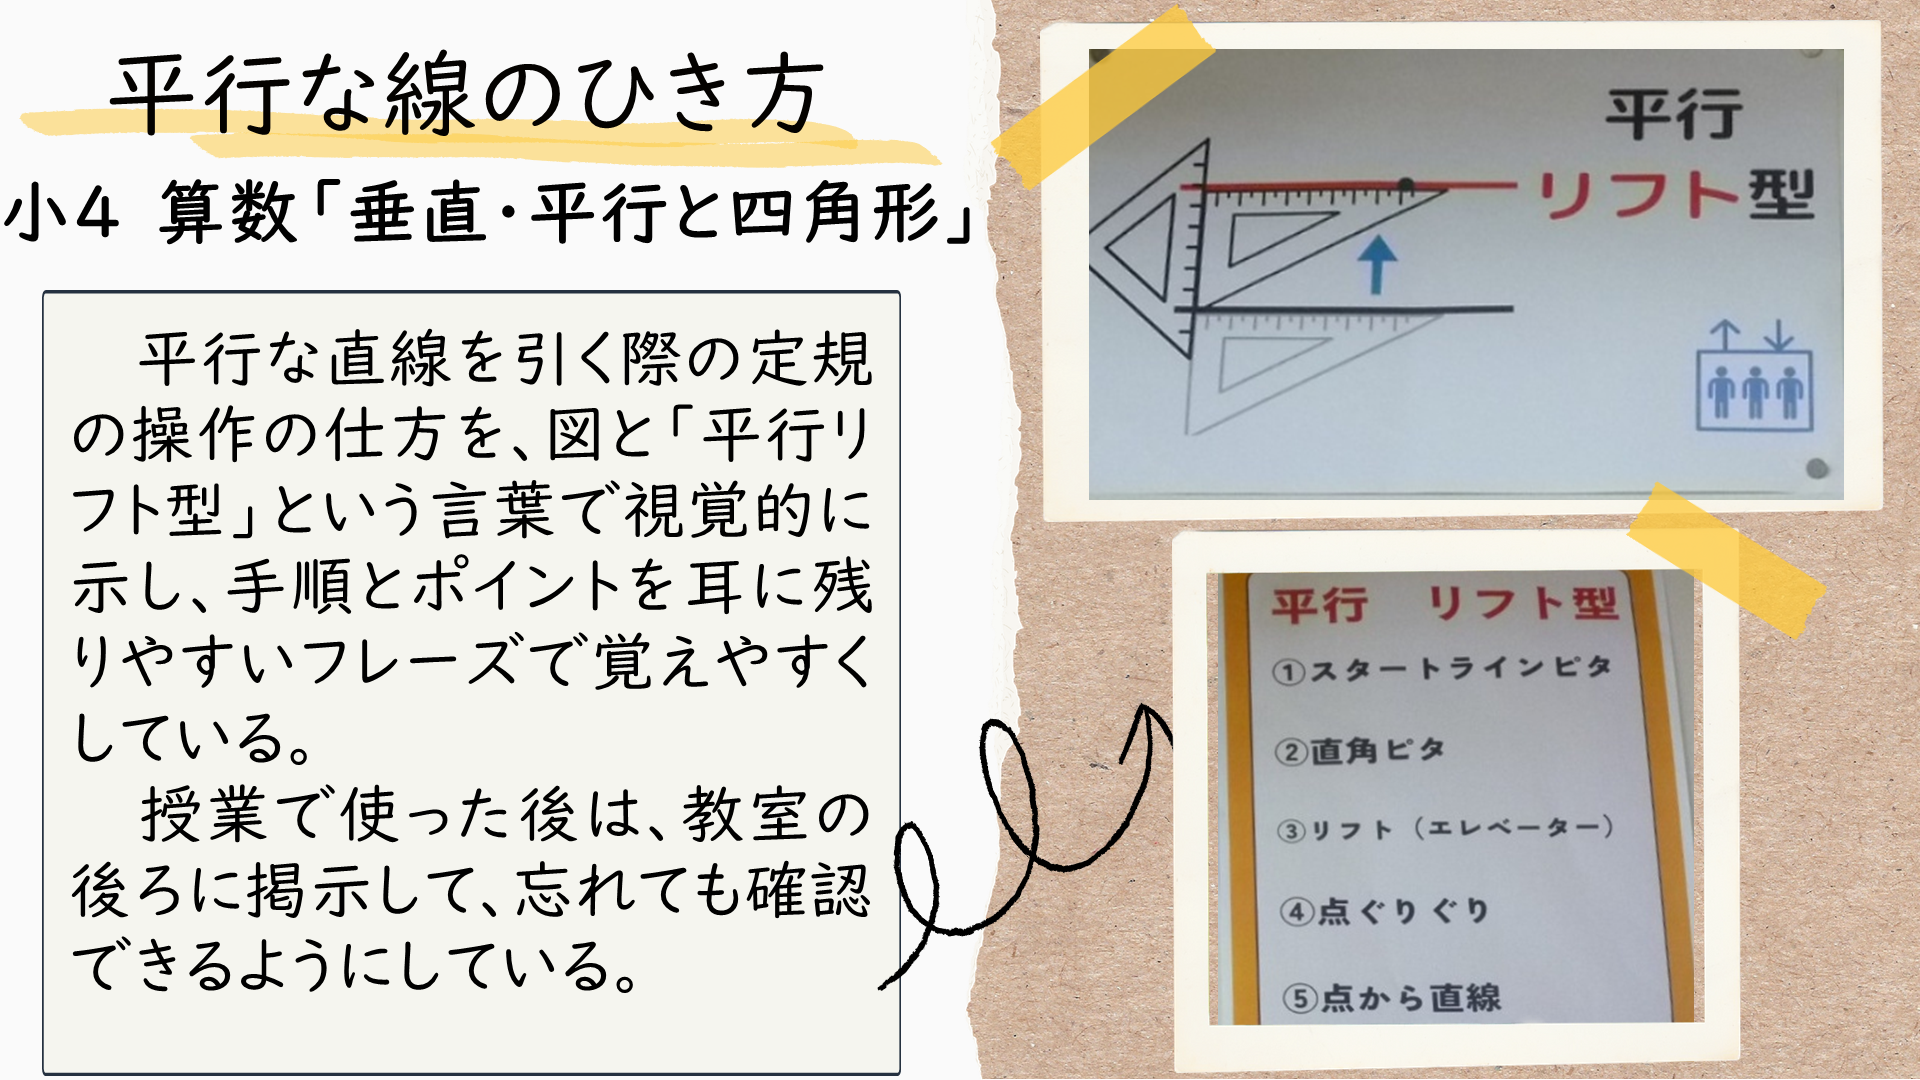 平行な線のひき方
小4 算数「垂直・平行と四角形」
平行な直線を引く際の定規
の操作の仕方を、図と「平行リ
フト型」という言葉で視覚的に
示し、手順とポイントを耳に残
りやすいフレーズで覚えやすく
している。
授業で使った後は、教室の
後ろに掲示して、忘れても確認
できるようにしている。
平行
リフト型
平行 リフト型
①スタートラインピタ
②直角ピタ
③リフト（エレベーター）
④点ぐりぐり
⑤点から直線